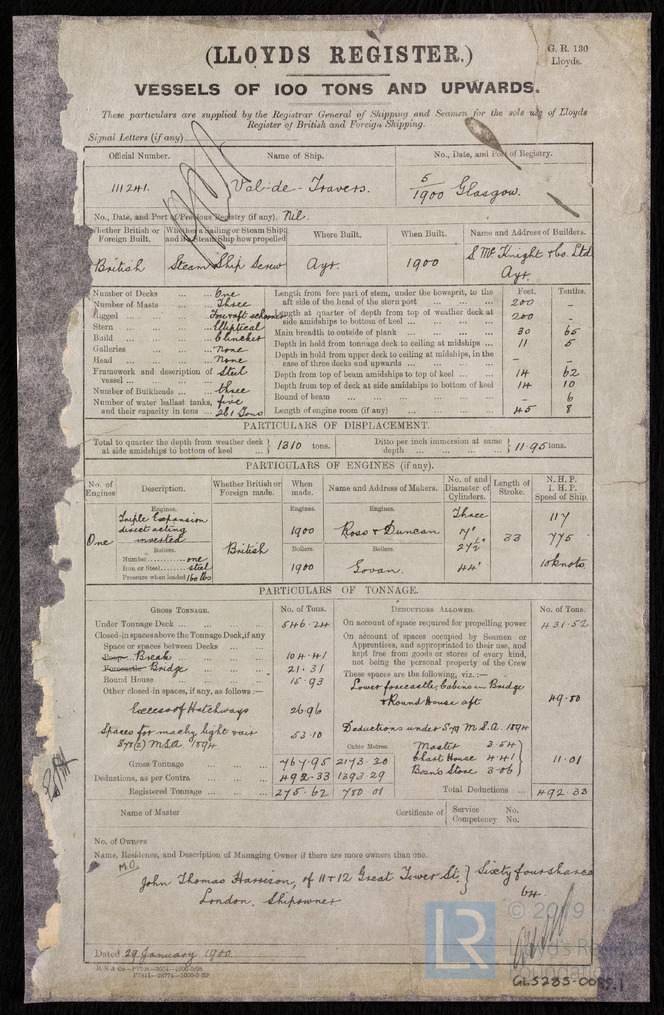 (LLOYDS REGISTER.)
G. R. 130
Lloyds.
VESSELS OF 100 TONS AND UPWARDS.
These particulars are supplied by the Registrar General of Shipping and Seamen for the sole use of Lloyds
Register of British and Foreign Shipping.
Signal Letters (if any)
Official Number. Name of Ship. No., Date, and Port of Registry.
111241. Val-de-Travers. 5/1900 Glasgow.
No., Date, and Port of Previous Registry (if any). Nil.
Whether British or Foreign Built. Whether a Sailing or Steam Ship; and if a Steam Ship how propelled Where Built. When Built. Name and Address of Builders.
British Steam Ship Screw Ayr. 1900 S. McKnight & Co. Ltd Ayr.
Number of Decks ... ... One
Number of Masts ... ... Three
Rigged ... Fore & aft schooner
Stern ... Elliptical
Build ... Clincher
Galleries ... None
Head ... None
Framework and description of vessel ... Steel
Number of Bulkheads ... three
Number of water ballast tanks, and their capacity in tons ... five 261 Tons
Feet. Tenths.
Length from fore part of stem, under the bowsprit, to the aft side of the head of the stern post ... 200 -
Length at quarter of depth from top of weather deck at side amidships to bottom of keel ... 200 -
Main breadth to outside of plank ... 30 65
Depth in hold from tonnage deck to ceiling at midships ... 11 5
Depth in hold from upper deck to ceiling at midships, in the case of three decks and upwards ... - -
Depth from top of beam amidships to top of keel ... 14 62
Depth from top of deck at side amidships to bottom of keel 14 10
Round of beam ... - 6
Length of engine room (if any) ... 45 8
PARTICULARS OF DISPLACEMENT.
Total to quarter the depth from weather deck at side amidships to bottom of keel ... 1310 tons. Ditto per inch immersion at same depth ... 11.95 tons.
PARTICULARS OF ENGINES (if any).
No. of Engines Description. Whether British or Foreign made. When made. Name and Address of Makers. No. of and Diameter of Cylinders. Length of Stroke. N.H.P. I.H.P. Speed of Ship.
Engines. Engines. Engines.
One Triple Expansion direct acting inverted British 1900 Ross & Duncan Three 33 117
775
Boilers. Boilers. Boilers.
Number ... one
Iron or Steel ... steel
Pressure when loaded 160 lbs
1900 Govan. 44" 10 knots
PARTICULARS OF TONNAGE.
GROSS TONNAGE. No. of Tons.
Under Tonnage Deck ... 546.24
Closed-in spaces above the Tonnage Deck, if any
Space or spaces between Decks ...
Poop Break ... 104.41
Forecastle Bridge ... 21.31
Round House ... 15.93
Other closed-in spaces, if any, as follows :—
Excess of Hatchways 26.96
Spaces for machy light & air 53.10
M.S.A. 1894
Gross Tonnage 767.95 Cubic Metres. 2173.30
Deductions, as per Contra ... 492.33 1393.29
Registered Tonnage ... 275.62 780.01
DEDUCTIONS ALLOWED. No. of Tons.
On account of space required for propelling power 431.52
On account of spaces occupied by Seamen or Apprentices, and appropriated to their use, and kept free from goods or stores of every kind, not being the personal property of the Crew
These spaces are the following, viz. :—
Lower forecastle, Cabins in Bridge
& Round House aft 49.80
Deductions under S.79 M.S.A. 1894
Master 3.54
Chart House 4.41
Bosns Store 3.06
11.01
Total Deductions ... 492.33
Name of Master Certificate of { Service No. Competency No.
No. of Owners
Name, Residence, and Description of Managing Owner if there are more owners than one.
M.O.
John Thomas Harrison, of 11 & 12 Great Tower St. } Sixty four shares
London, Shipowner 64
Dated 29 January 1900
© 20 9
LR
Lloyd's Register
Foundation
GLS235-0089.1